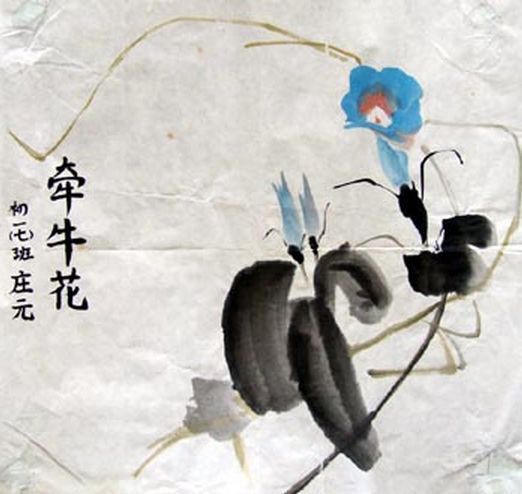 牵牛花
初一(七)班 庄元